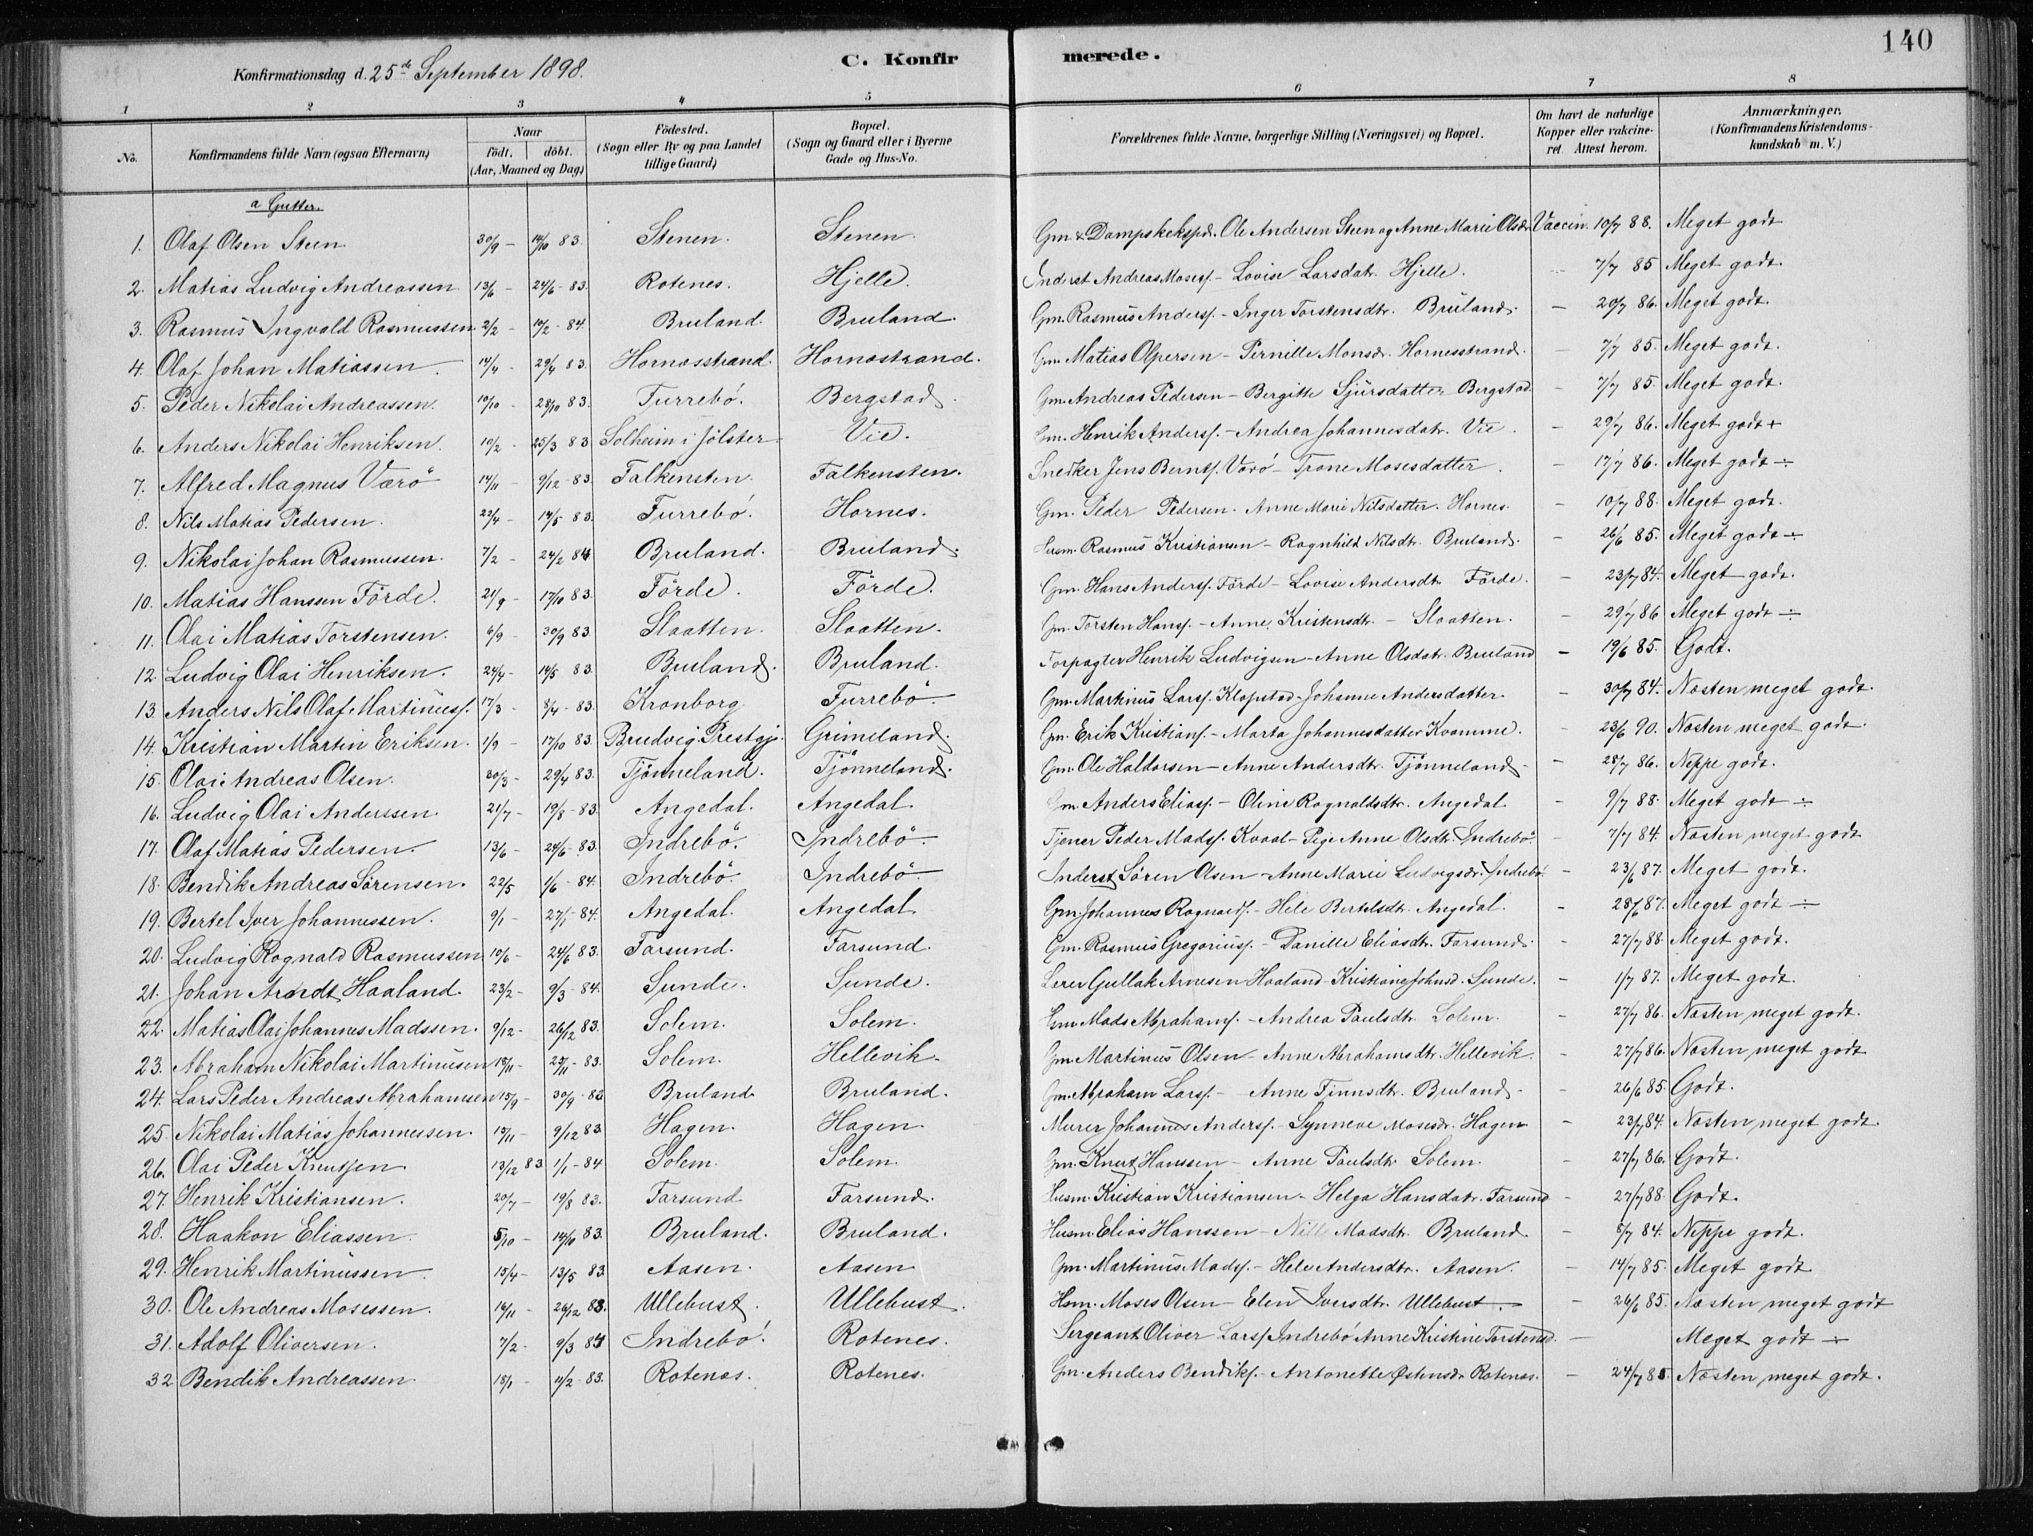 140
Konfirmationsdag d. 25de September 1898.
C. Konfirmerede.
1 2 3 4 5 6 7 8
No. Konfirmandens fulde Navn (ogsaa Efternavn) Naar födt. döbt. (Aar, Maaned og Dag) Födested. (Sogn eller By og paa Landet tillige Gaard) Bopæl. (Sogn og Gaard eller i Byerne Gade og Hus-No. Forældrenes fulde Navne, borgerlige Stilling (Næringsvei) og Bopæl. Om havt de naturlige Kopper eller vakcineret. Attest herom. Anmærkninger, (Konfirmandens Kristendomskundskab m. V.)
a Gutter.
1. Olaf Olsen Steen 30/9 – 14/10 83. Stenen. Stenen. Gm. & Dampskekspd. Ole Andersen Steen og Anne Marie Olsdr. Vaccin. 10/7 88. Meget godt
2. Matias Ludvig Andreassen 13/6 – 24/6 - 83. Rotenes. Hjelle. Inderst Andreas Moses. – Lovise Larsdatr. Hjelle. 7/7 85 Meget godt.
3. Rasmus Ingvald Rasmussen 2/2 – 10/2 - 84. Bruland. Bruland. Gm. Rasmus Anders. – Inger Torstensdtr. Bruland. – 20/7 86. Meget godt.
4. Olaf Johan Matiassen. 14/4 – 29/4 83. Hornesstrand. Hornesstrand. Gm. Matias Olpersen – Pernille Monsdr. Hornesstrand. – 7/7 85. Meget godt.
5. Peder Nikolai Andreassen. 10/10 – 28/10 83. Furrebö. Bergstad. Gm. Andreas Pedersen – Bergitte Sjursdatter Bergstad – 7/7 85. Meget godt.
6. Anders Nikolai Henriksen. 10/2 – 25/3 83 Solheim i Jölster Vie. Gm. Henrik Anders. – Andrea Johannesdatr. Vie. – 29/7 86. Meget godt +
7. Alfred Magnus Værö 14/11 – 9/12 - 83. Falkensten. Falkensten. Snedker Jens Bernts. Værö – Trone Mosesdatter. – 17/7 86. Meget godt ÷
8. Nils Matias Pedersen. 22/4 – 14/5 - 83. Furrebö. Hornes. Gm. Peder Pedersen. Anne Marie Nilsdatter. Hornes. – 10/7 88. Meget godt.
9. Nikolai Johan Rasmussen. 7/2 – 24/2 84 Bruland. Bruland. Husm. Rasmus Kristiansen – Ragnhild Nilsdtr. Bruland. – 26/6 85. Meget godt ÷
10. Matias Hanssen Förde. 21/9 – 17/10 83. Förde. Förde. Gm. Hans Anders. Förde – Lovise Andersdtr. Förde. – 23/7 84. Meget godt.
11. Olai Matias Torstensen. 6/9 – 30/9 83. Slaatten. Slaatten. Gm. Torsten Hans. – Anne Kristensdtr. – Slaatten. – 29/7 86 Meget godt ÷
12. Ludvig Olai Henriksen. 24/4 – 14/5 83. Bruland. Bruland. Forpagter Henrik Ludvigsen – Anne Olsdatr. Bruland – 19/6 85. Godt.
13. Anders Nils Olaf Martinus. 17/3 – 8/4 - 83. Kronborg Furrebö. Gm. Martinus Lars. Klopstad – Johanne Andersdatter. – 30/7 84. Næsten meget godt.
14. Kristian Martin Eriksen. 1/9 – 17/10 83. Brudvig Prestgj. Grimeland. Gm. Erik Kristians. – Marta Johannesdatter Kvamme. – 23/6 90. Næsten meget godt.
15. Olai Andreas Olsen. 30/3 – 29/4 83. Tjönneland. Tjönneland. Gm. Ole Haldorsen – Anne Andersdtr. Tjönneland – 28/7 86. Neppe godt.
16. Ludvig Olai Anderssen 21/7 – 19/8 - 83. Angedal. Angedal. Gm. Anders Elias. – Oline Ragnaldsdtr. Angedal – 9/7 88. Meget godt ÷
17. Olaf Matias Pedersen. 13/6 – 24/6 - 83. Indrebö. Indrebö. Tjener Peder Mads. Kvaal – Pige Anne Olsdtr. Indrebö. – 7/7 84. Næsten meget godt
18. Bendik Andreas Sörensen. 22/5 1/6 - 84. Indrebö. Indrebö. Inderst Sören Olsen – Anne Marie Ludvigsdr. Indrebö. – 23/6 87. Meget godt.
19. Bertel Iver Johannessen. 9/1 – 27/1 - 84. Angedal. Angedal Gm. Johannes Ragnald. – Hele Bertelsdtr. Angedal. – 28/6 87. Meget godt ÷
20. Ludvig Ragnald Rasmussen 10/6 – 24/6 83. Farsund. Farsund. Gm. Rasmus Gregorius. – Danille Eliasdtr. Farsund. – 27/7 88. Meget godt.
21. Johan Arndt Haaland. 23/2 – 9/3 - 84. Sunde. Sunde. Lerer Gullak Arnesen Haaland – Kristiane Johnsd. Sunde. – 1/7 87. Meget godt.
22. Matias Olai Johannes Madssen. 9/12 – 26/12 83. Solem. Solem. Gm. Mads Abrahams. – Andrea Paulsdtr. Solem. – 27/7 86. Næsten meget godt.
23. Abraham Nikolai Martinusen 18/11 – 27/11 - 83. Solem. Hellevik. Gm. Martinus Olsen – Anne Abrahamsdtr. Hellevik. – 27/7 86. Næsten meget godt
24. Lars Peder Andreas Abrahamsen 15/9 – 30/9 - 83. Bruland Bruland. Gm. Abraham Lars. – Anne Finnsdtr. Bruland – – 26/6 85. Godt.
25. Nikolai Matias Johannessen. 17/11 – 9/12 83. Hagen. Hagen. Murer Johannes Anders. – Synneve Mosesdr. Hagen – 23/7 84. Næsten meget godt.
26. Olai Peder Knutsen 13/12 83 1/1 - 84 Solem. Solem. Gm. Knut Hanssen – Anne Paulsdtr. Solem. – 27/7 86. Godt.
27. Henrik Kristiansen. 20/7 – 19/8 83. Farsund Farsund. Husm. Kristian Kristiansen – Helga Hansdatr. Farsund – 27/7 88. Godt.
28. Haakon Eliassen. 5/10 – 14/10 83. Bruland. Bruland. Husm. Elias Hanssen – Nille Madsdtr. Bruland. – 8/7 84. Neppe godt.
29. Henrik Martinussen. 15/4 – 13/5 83. Aasen. Aasen Gm. Martinus Mads. – Hele Andersdtr. Aasen. – 14/7 85. Meget godt
30. Ole Andreas Mosessen. 16/11 – 26/12 83. Ullebust. Ullebust. Hsm. Moses Olsen – Elen Iversdtr. Ullebust. – – 26/6 85. Næsten meget godt
31. Adolf Oliversen. 7/2 – 9/3 84 Indrebö. Rotenes. Sergeant Oliver Lars. Indrebö Anne Kristine Torstensd. – Meget godt ÷
32 Bendik Andreassen. 18/1 – 11/2 - 83. Rotenes. Rotenes. Gm. Anders Bendiks. – Antonette Østensdr. Rotenes. – 24/7 85. Næsten meget godt.